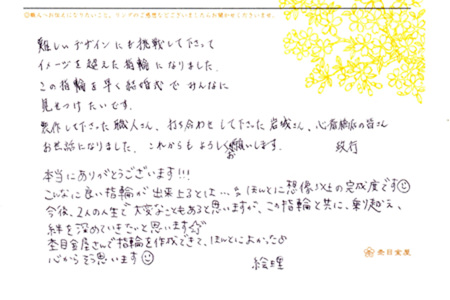 ◎職人へお伝えになりたいこと、リングのご感想などございましたらお聞かせくださいませ。
難しいデザインにも挑戦して下さって
イメージを超えた指輪になりました。
この指輪を早く結婚式でみんなに
見せつけたいです。
製作して下さった職人さん、打ち合わせして下さった岩城さん、心斎橋店の皆さん
お世話になりました。これからもよろしくお願いします。
本当にありがとうございます!!!
こんなに良い指輪が出来上るとは…。ほんとに想像以上の完成度です☺
今後、2人の人生で大変なこともあると思いますが、この指輪と共に、乗り越え、
絆を深めていきたいと思います☆
杢目金屋さんで指輪を作成できて、ほんとによかった♪
心からそう思います☺
絵理
杢目金屋